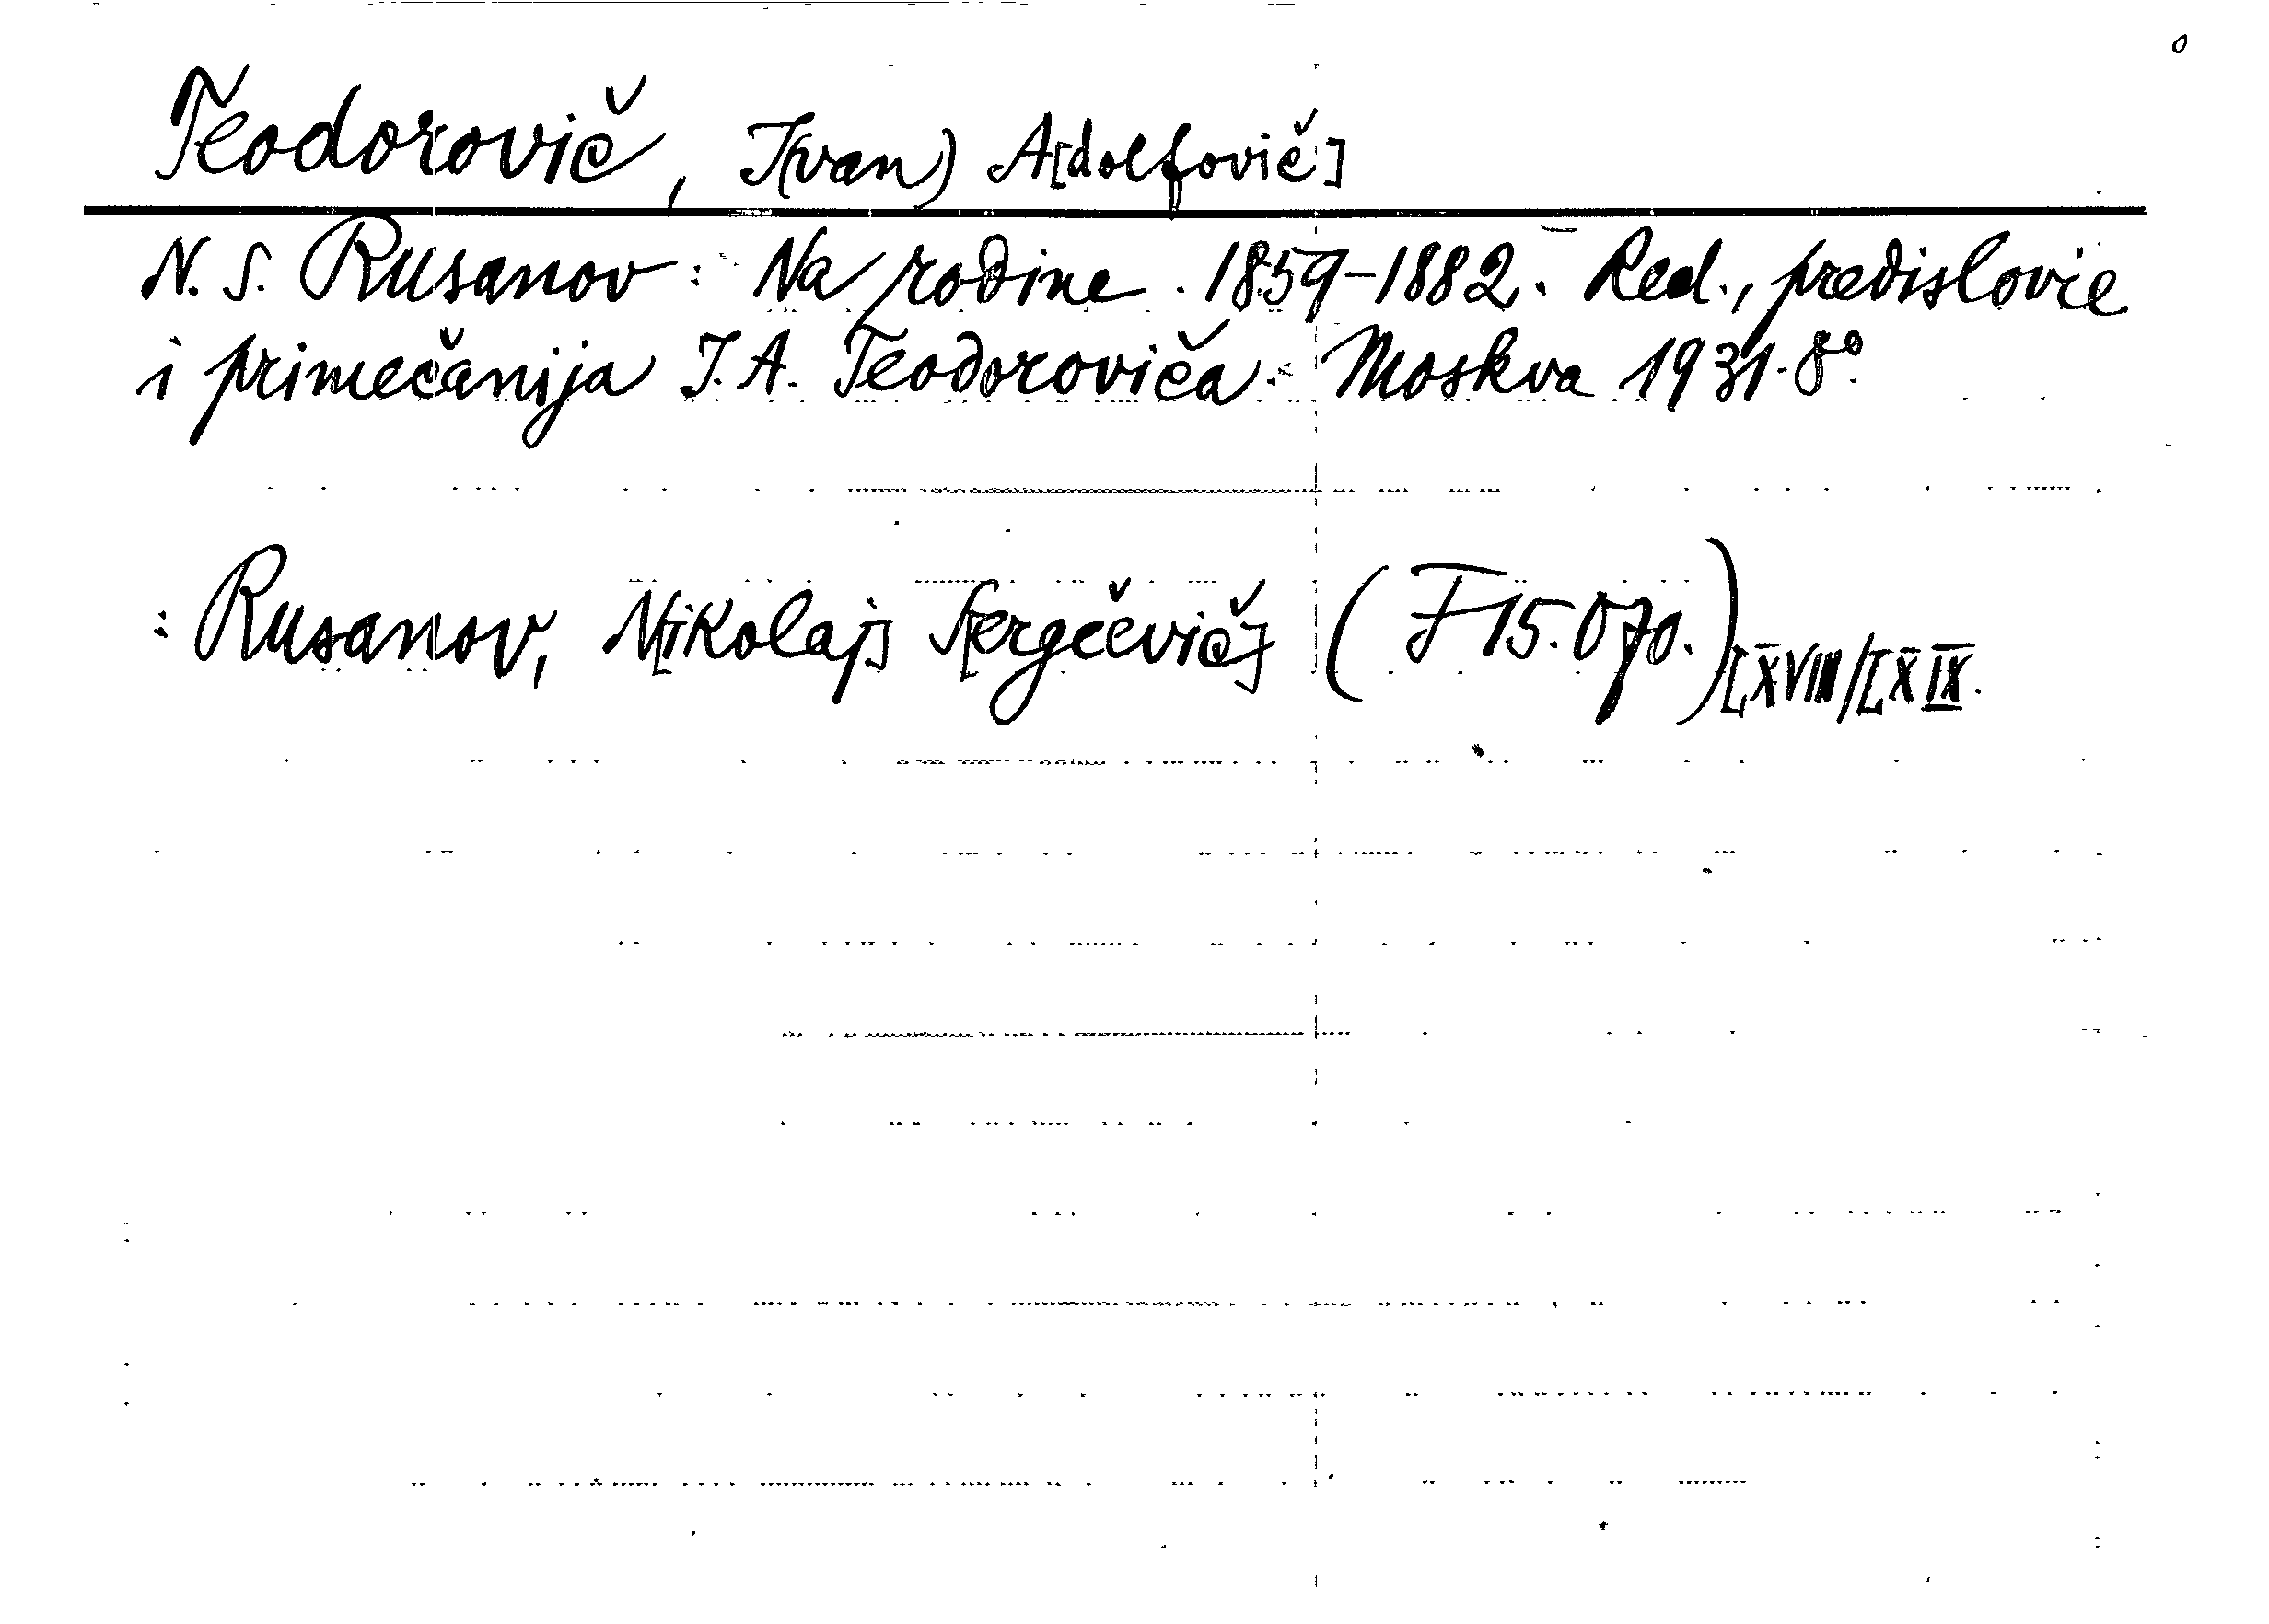 o
Teodorovič, I(van) A[dolfovič]
N. S. Rusanov: Na rodine. 1859-1882. Red., predislovie
i primečanija I. A. Teodoroviča. Moskva 1931. 8°.
: Rusanov, N[ikolaj] S[ergěevič] (F 15.070.) LXVIII/LXIX.